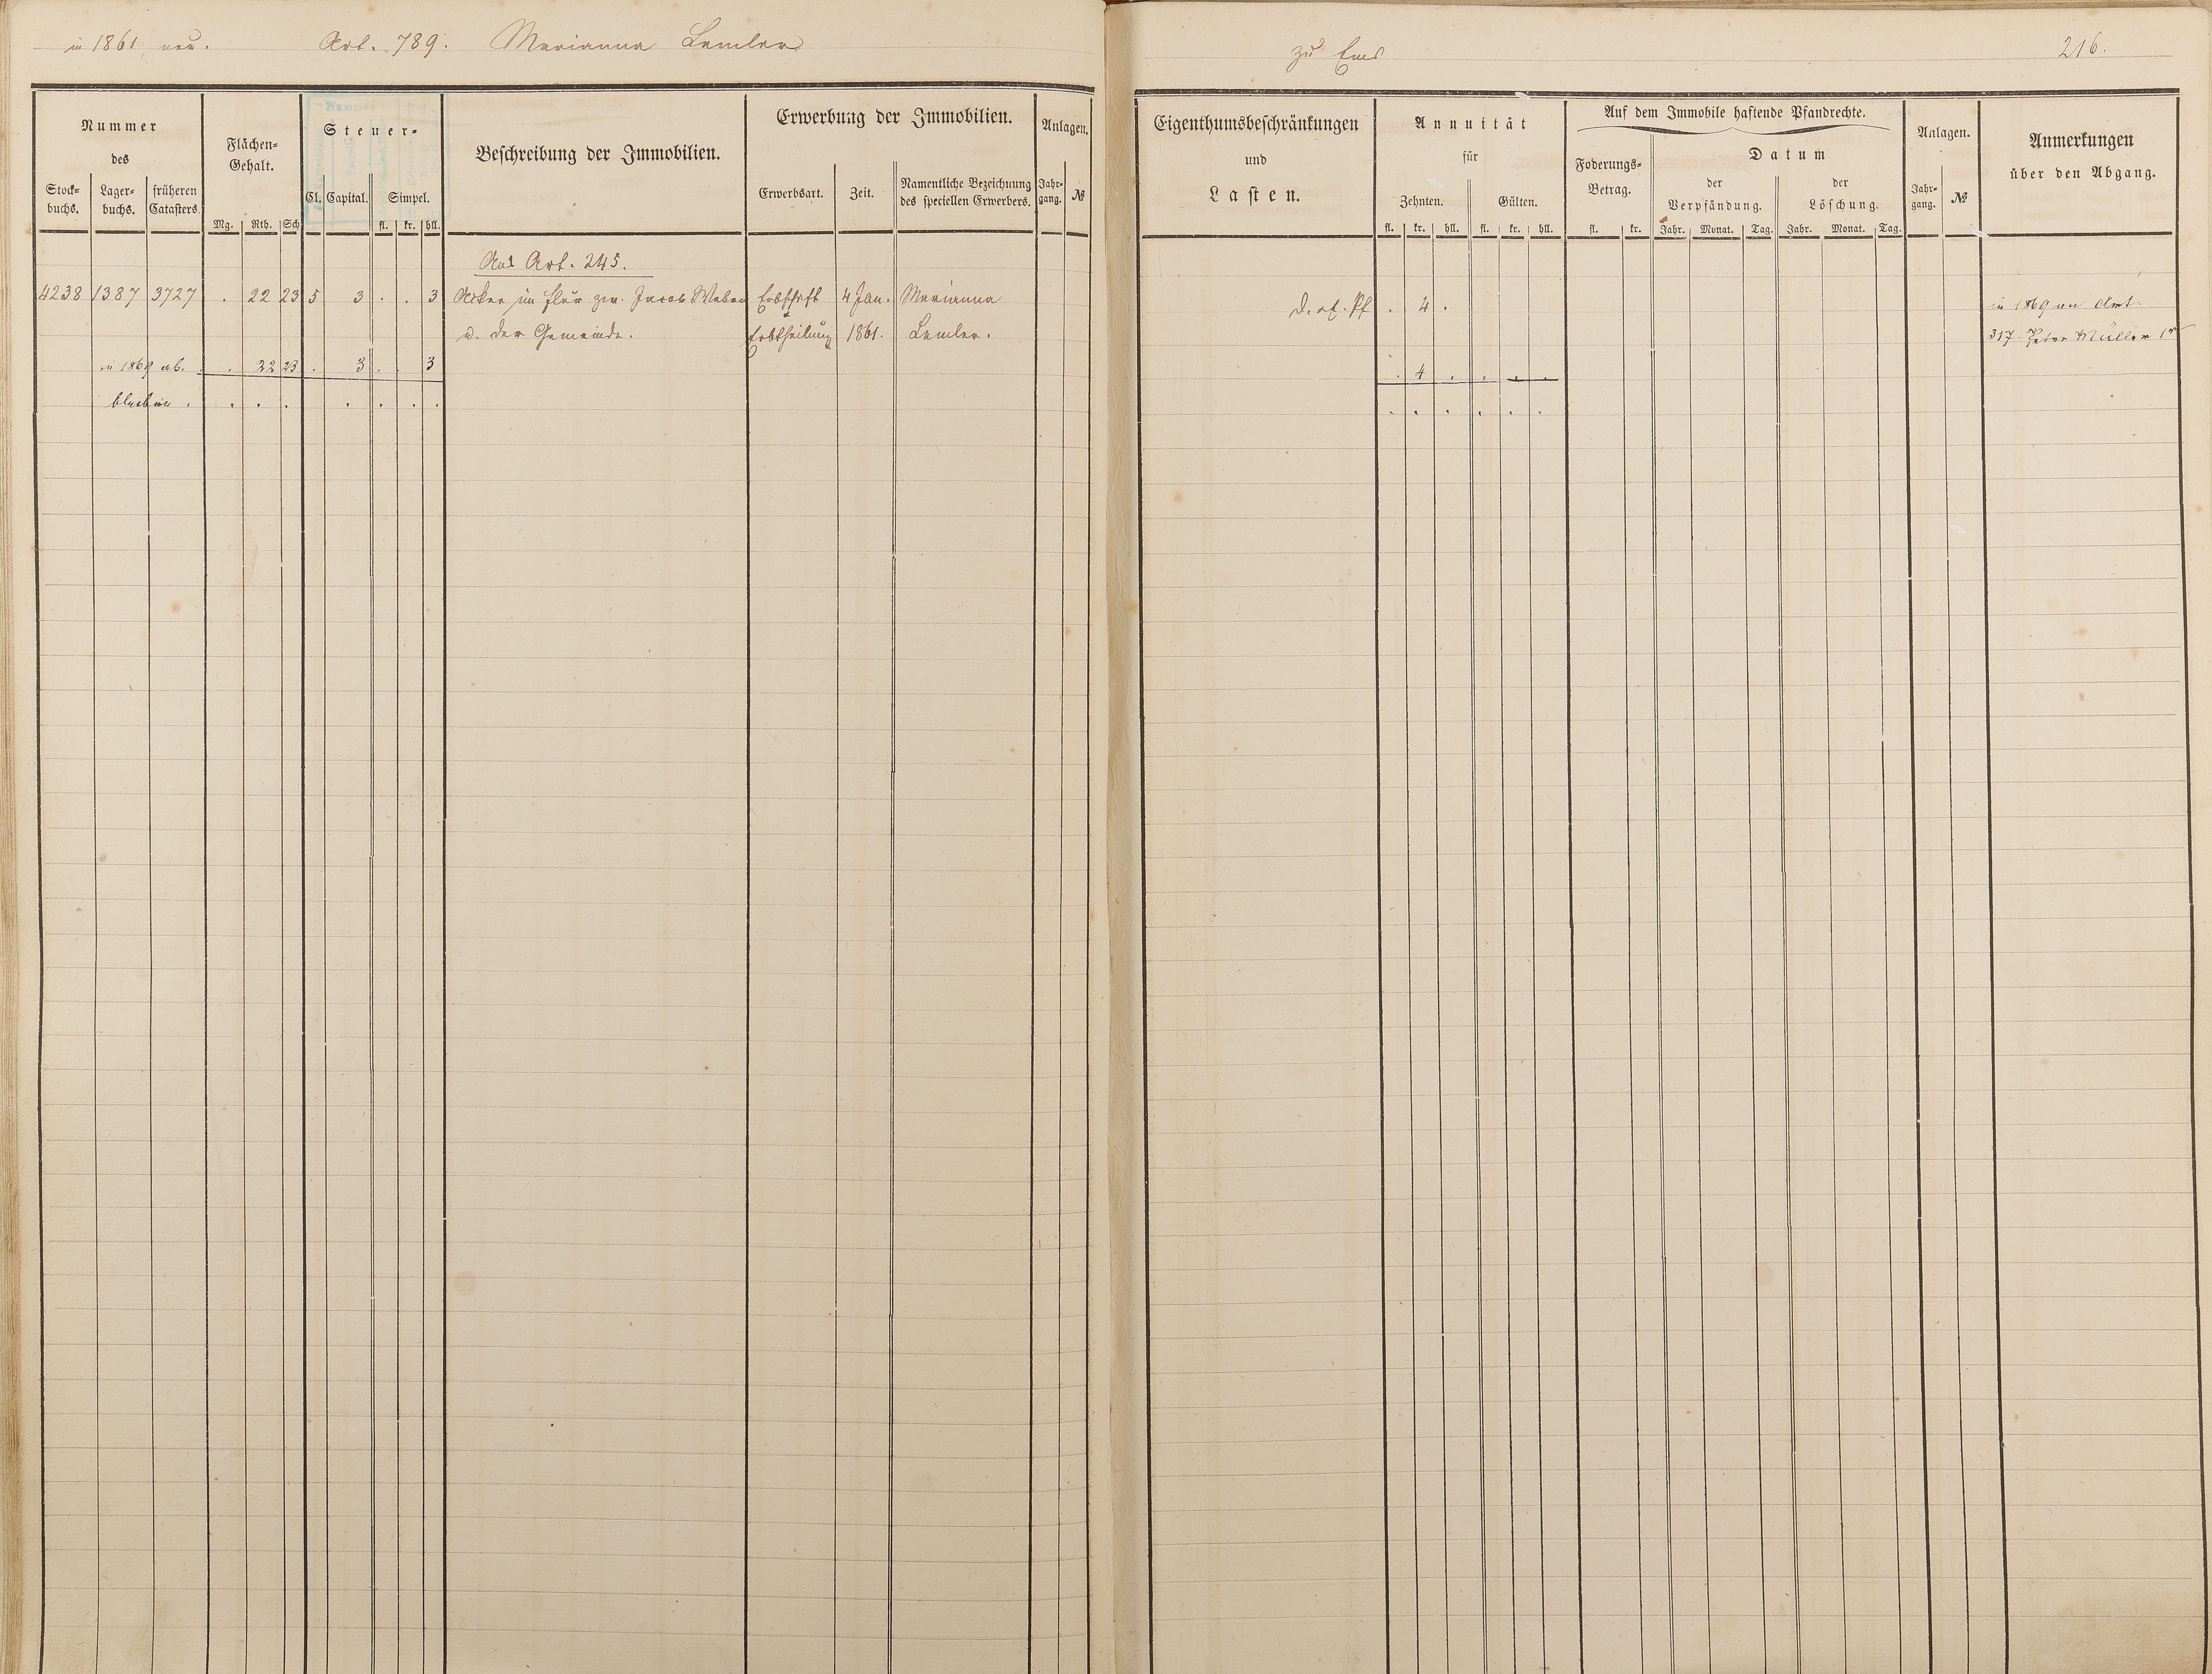 in 1861 neu. Art. 789. Marianna Lemler
zu Ems 216.
Nummer
des
Stock=
buchs.
Lager=
buchs.
früheren
Catasters.
Flächen=
Gehalt.
Mg. Rth. Sch
Steuer=
Cl. Capital. Simpel.
fl. kr. hll.
Beschreibung der Immobilien.
Erwerbung der Immobilien.
Erwerbsart. Zeit.
Namentliche Bezeichnung
des speciellen Erwerbers.
Anlagen.
Jahr=
gang.
№
Eigenthumsbeschränkungen
und
Lasten.
Annuität
für
Zehnten. Gülten.
fl. kr. hll. fl. kr. hll.
Auf dem Immobile haftende Pfandrechte.
Foderungs=
Betrag.
fl. kr.
Datum
der
Verpfändung.
Jahr. Monat. Tag.
der
Löschung.
Jahr. Monat. Tag.
Anlagen.
Jahr=
gang.
№
Anmerkungen
über den Abgang.
Aus Art. 245.
4238 1387 3727 . 22 23 5 3 . . 3 Acker im Flur zw. Jacob Weber Erbschaft 4 Jan. Marianna
u. der Gemeinde. Erbtheilung 1861. Lemler.
in 1869 ab. . 22 23 . 3 . . 3
bleiben . . . . . . . .
. 4 .
. 4 . . . .
. . . . . .
in 1869 an Art.
317 Peter Müller 1r